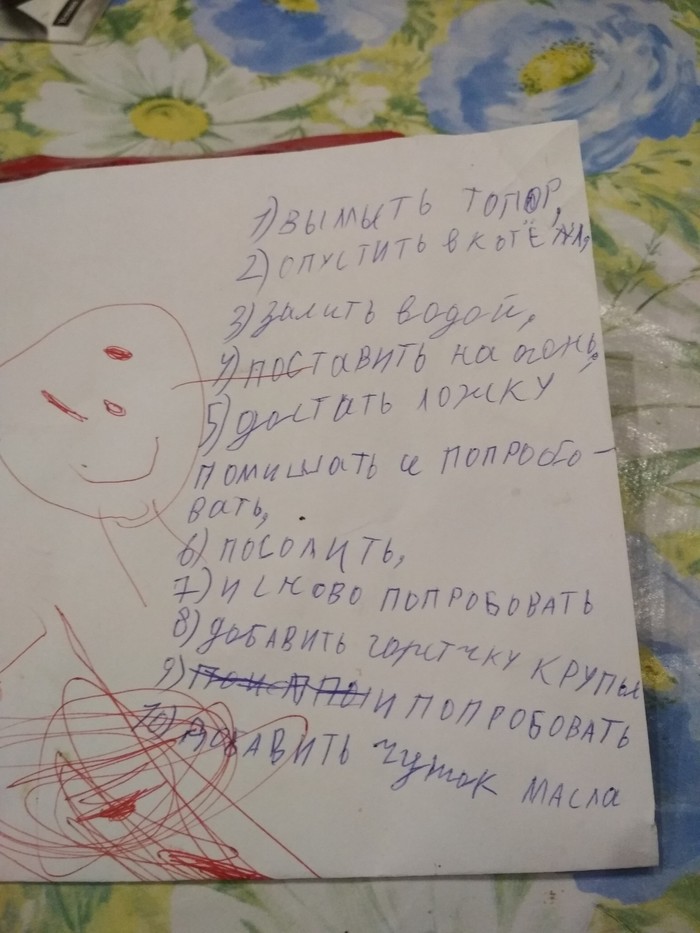 1) ВЫМЫТЬ ТОПОР,
2) СПУСТИТЬ В КОТЁЛ,
3) Залить водой,
4) ПОСТАВИТЬ на огонь,
5) достать ложку
помишать и попробо-
вать,
6) ПОСОЛИТЬ,
7) И СНОВО ПОПРОБОВАТЬ
8) ДОБАВИТЬ горстчку КРУПЫ
9) И ПОПРОБОВАТЬ
10) ДОБАВИТЬ чуток масла